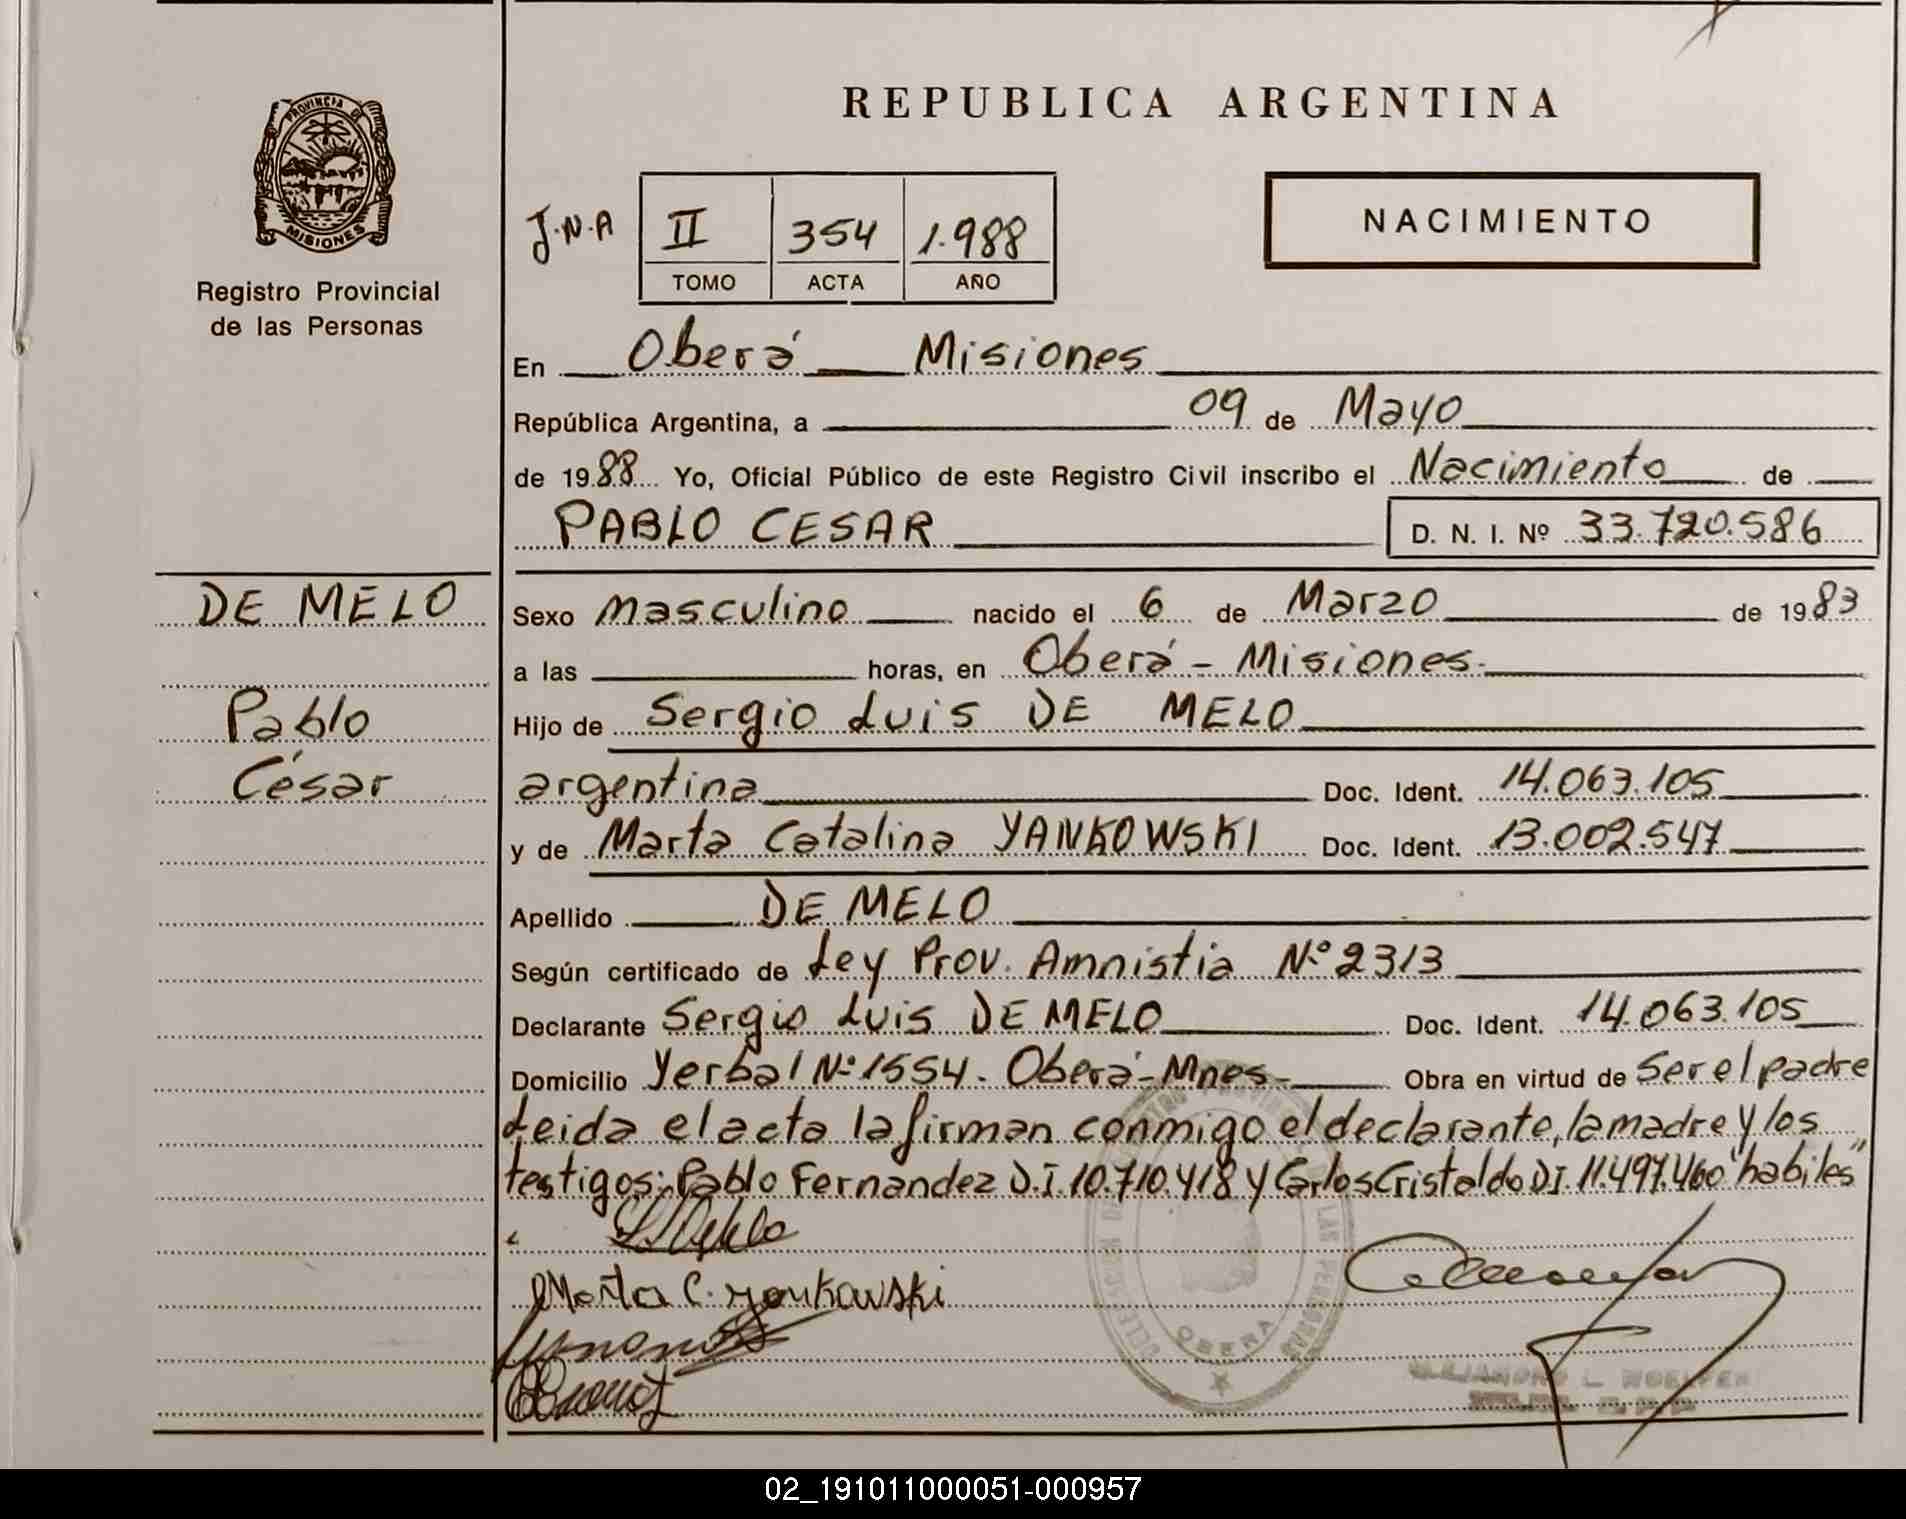 REPUBLICA ARGENTINA
PROVINCIA DE
MISIONES
Registro Provincial
de las Personas
J.N.A
II 354 1.988
TOMO ACTA AÑO
NACIMIENTO
En Oberá Misiones
República Argentina, a 09 de Mayo
de 1988 Yo, Oficial Público de este Registro Civil inscribo el Nacimiento de
PABLO CESAR D. N. I. Nº 33.720.586
DE MELO
Pablo
César
Sexo masculino nacido el 6 de Marzo de 1983
a las horas, en Oberá - Misiones.
Hijo de Sergio Luis DE MELO
argentina Doc. Ident. 14.063.105
y de Marta Catalina YANKOWSKI Doc. Ident. 13.002.547
Apellido DE MELO
Según certificado de Ley Prov. Amnistia Nº 2313
Declarante Sergio Luis DE MELO Doc. Ident. 14.063.105
Domicilio Yerbal Nº 1554. Oberá - Mnes - Obra en virtud de Ser el padre
Leida el acta la firman conmigo el declarante, la madre y los
testigos: Pablo Fernandez D.I. 10.710.418 y Carlos Cristaldo D.I. 11.497.460 "habiles"
Marta C. Yankowski
OBERA
02_191011000051-000957